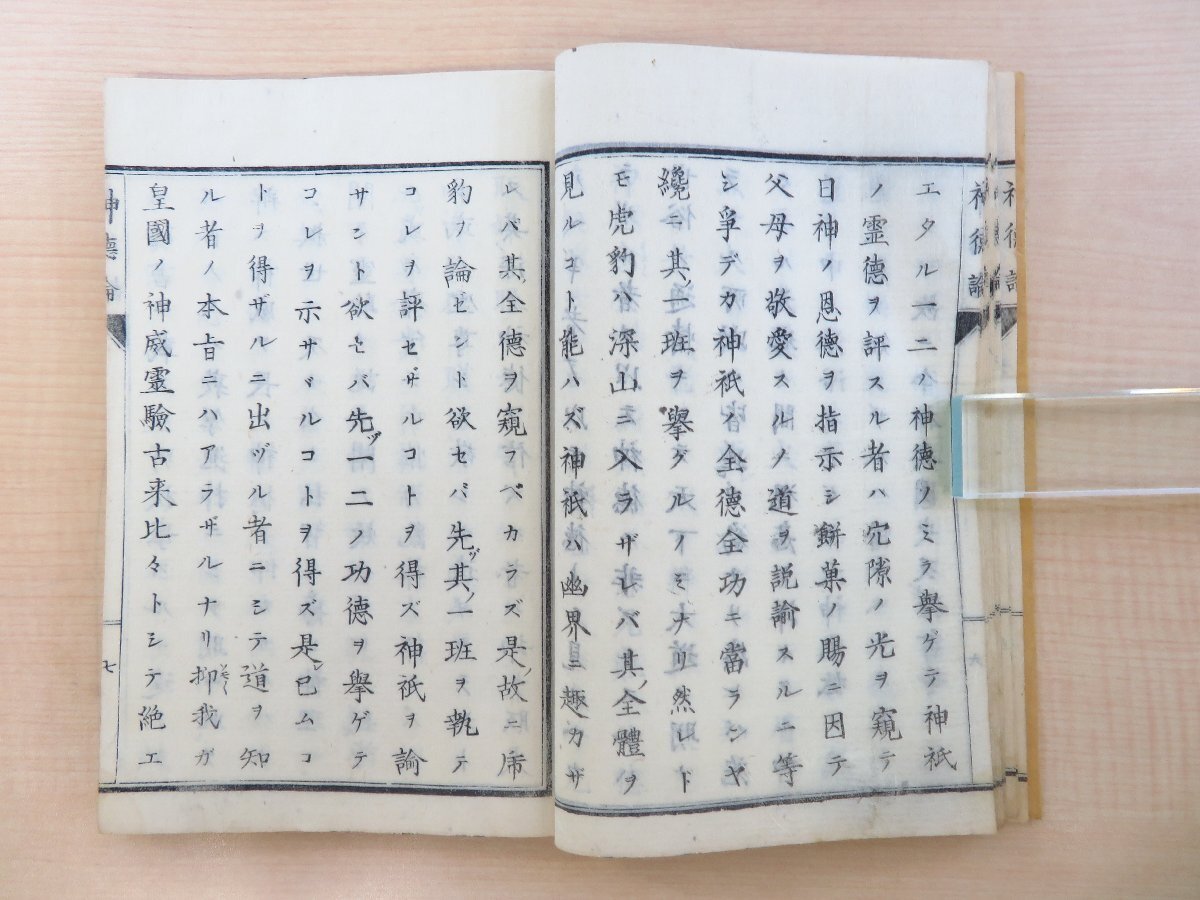 エタル一二ノ神德ノミヲ擧ゲテ神祇
ノ靈德ヲ評スル者ハ穴隙ノ光ヲ窺テ
日神ノ恩德ヲ指示シ餅菓ノ賜ニ因テ
父母ヲ敬愛スルノ道ヲ説諭スルニ等
シ爭デカ神祇ノ全德全功ニ當ランヤ
纔ニ其ノ一班ヲ擧グルノミナリ然レド
モ虎豹ハ深山ニ入ラザレバ其ノ全體ヲ
見ルコト能ハズ神祇ハ幽界ニ趣カザ
レバ其ノ全德ヲ窺フベカラズ是ノ故ニ虎
豹ヲ論ゼント欲セバ先ヅ其ノ一班ヲ執テ
コレヲ評セザルコトヲ得ズ神祇ヲ論
サント欲セバ先ヅ一二ノ功德ヲ擧ゲテ
コレヲ示サヾルコトヲ得ズ是レ已ムコ
トヲ得ザルニ出ヅル者ニシテ道ヲ知
ル者ノ本旨ニハアラザルナリ抑我ガ
皇國ノ神威靈驗古来比々トシテ絶エ
神德論
七